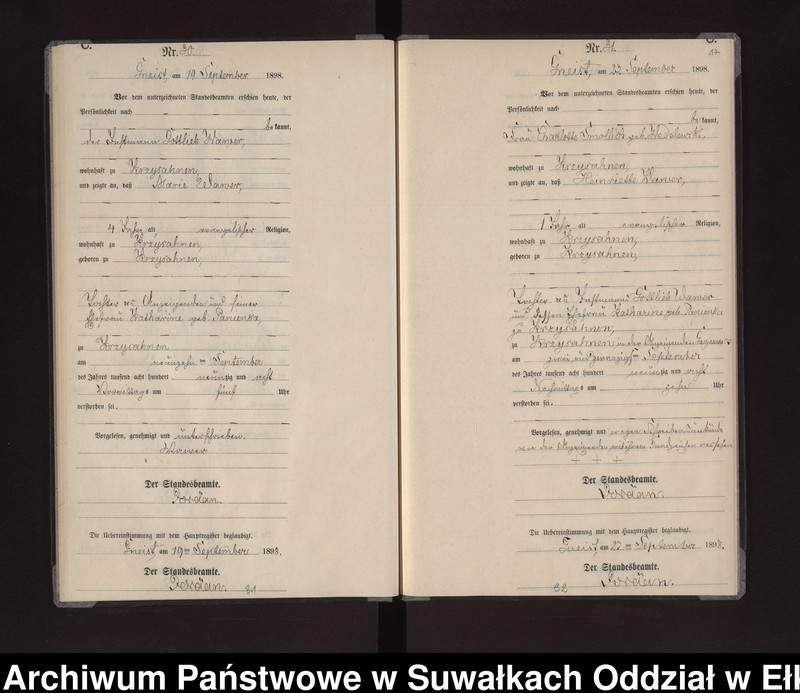 C.
Nr. 30
Gneist, am 19 September 1898.
Vor dem unterzeichneten Standesbeamten erschien heute, der
Persönlichkeit nach
be kannt,
der Instmann Gottlieb Wawer,
wohnhaft zu Krzysahnen,
und zeigte an, daß Marie Wawer,
4 Jahre alt evangelischer Religion,
wohnhaft zu Krzysahnen,
geboren zu Krzysahnen,
Tochter des Anzeigenden und seiner
Ehefrau Katharine geb. Panienka,
zu Krzysahnen
am neunzehnten September
des Jahres tausend acht hundert neunzig und acht
Vormittags um fünf Uhr
verstorben sei.
Vorgelesen, genehmigt und unterschrieben.
Wawer
Der Standesbeamte.
Jordan.
Die Uebereinstimmung mit dem Hauptregister beglaubigt.
Gneist, am 19ten September 1898.
Der Standesbeamte.
Jordan.
31
C.
17
Nr. 31.
Gneist, am 22 September 1898.
Vor dem unterzeichneten Standesbeamten erschien heute, der
Persönlichkeit nach
be kannt,
Frau Charlotte geb.
wohnhaft zu Krzysahnen,
und zeigte an, daß Heinriette Wawer,
1 Jahr alt evangelischer Religion,
wohnhaft zu Krzysahnen,
geboren zu Krzysahnen,
Tochter des Instmanns Gottlieb Wawer
und dessen Ehefrau Katharine geb. Panienka
zu Krzysahnen,
zu Krzysahnen in der Anzeigenden Gegenwart
am einundzwanzigsten September
des Jahres tausend acht hundert neunzig und acht
Nachmittags um zehn Uhr
verstorben sei.
Vorgelesen, genehmigt und wegen Schreibensunkunde
von der Anzeigenden mit ihrem Handzeichen versehen
+ + +
Der Standesbeamte.
Jordan.
Die Uebereinstimmung mit dem Hauptregister beglaubigt.
Gneist, am 22ten September 1898.
Der Standesbeamte.
Jordan.
32
Archiwum Państwowe w Suwałkach Oddział w Eł